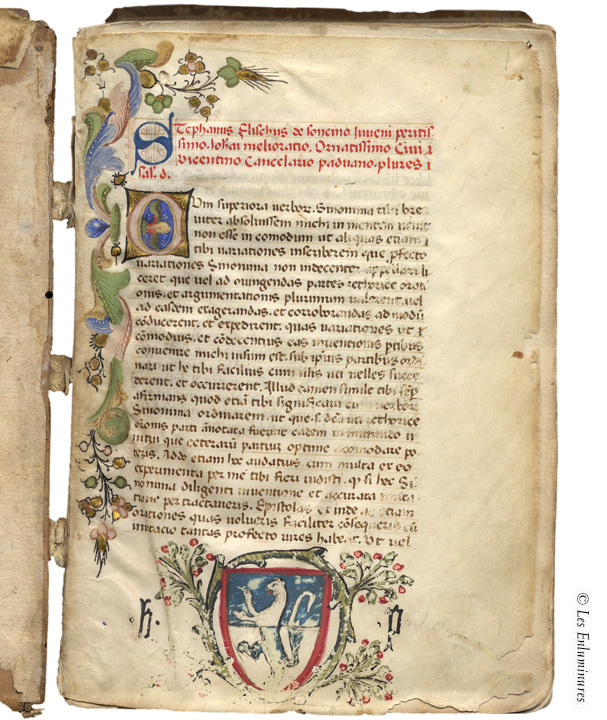 Stephanus Flischus de soncino Iuveni peritis
simo. Iohãi melioratio. Ornatissimo Civi
vicentino Cancelario paduano. plures
sal. d.
Cum superiora verbor. Sinonima tibi bre
viter absoluissem michi in mentem venit
non esse in comodum ut aliquas etiam
tibi variationes inscriberem que profecto
variationes Sinonima non indecenter appellari li
ceret que vel ad ornandas partes rethorice orati
onis. et argumentationis plurimum valerent. vel
ad easdem exagerandas. et corroborandas ad modũ
cõducerent. et expedirent. quas variationes ut
cõmodius. et cõdecentius eas inventionis ptibus
convenire michi visum est. sub ipsis partibus ordi
navi ut le tibi facilius cum illis uti velles succe
terent. et occurrerent. Illud tamen simile tibi
afirmans quod etiã tibi significavi cum verbor
Sinonima ordinarem. ut que si. rethorice
eionis parti ãnotata fuerint eadem
nitui que ceterarũ partiũ optime acomodare po
teris. Addo etiam hec audatius cum multa ex eo
experimenta per me tibi fieri vidisti. si hec Si
nonima diligenti inventione et accurata
tione per tractaveris. Epistolas et inde ac etiam
orationes quas volueris faciliter cõsequeris
mutatio tantas profecto vires habeat. Ut vel
© Les Enluminures